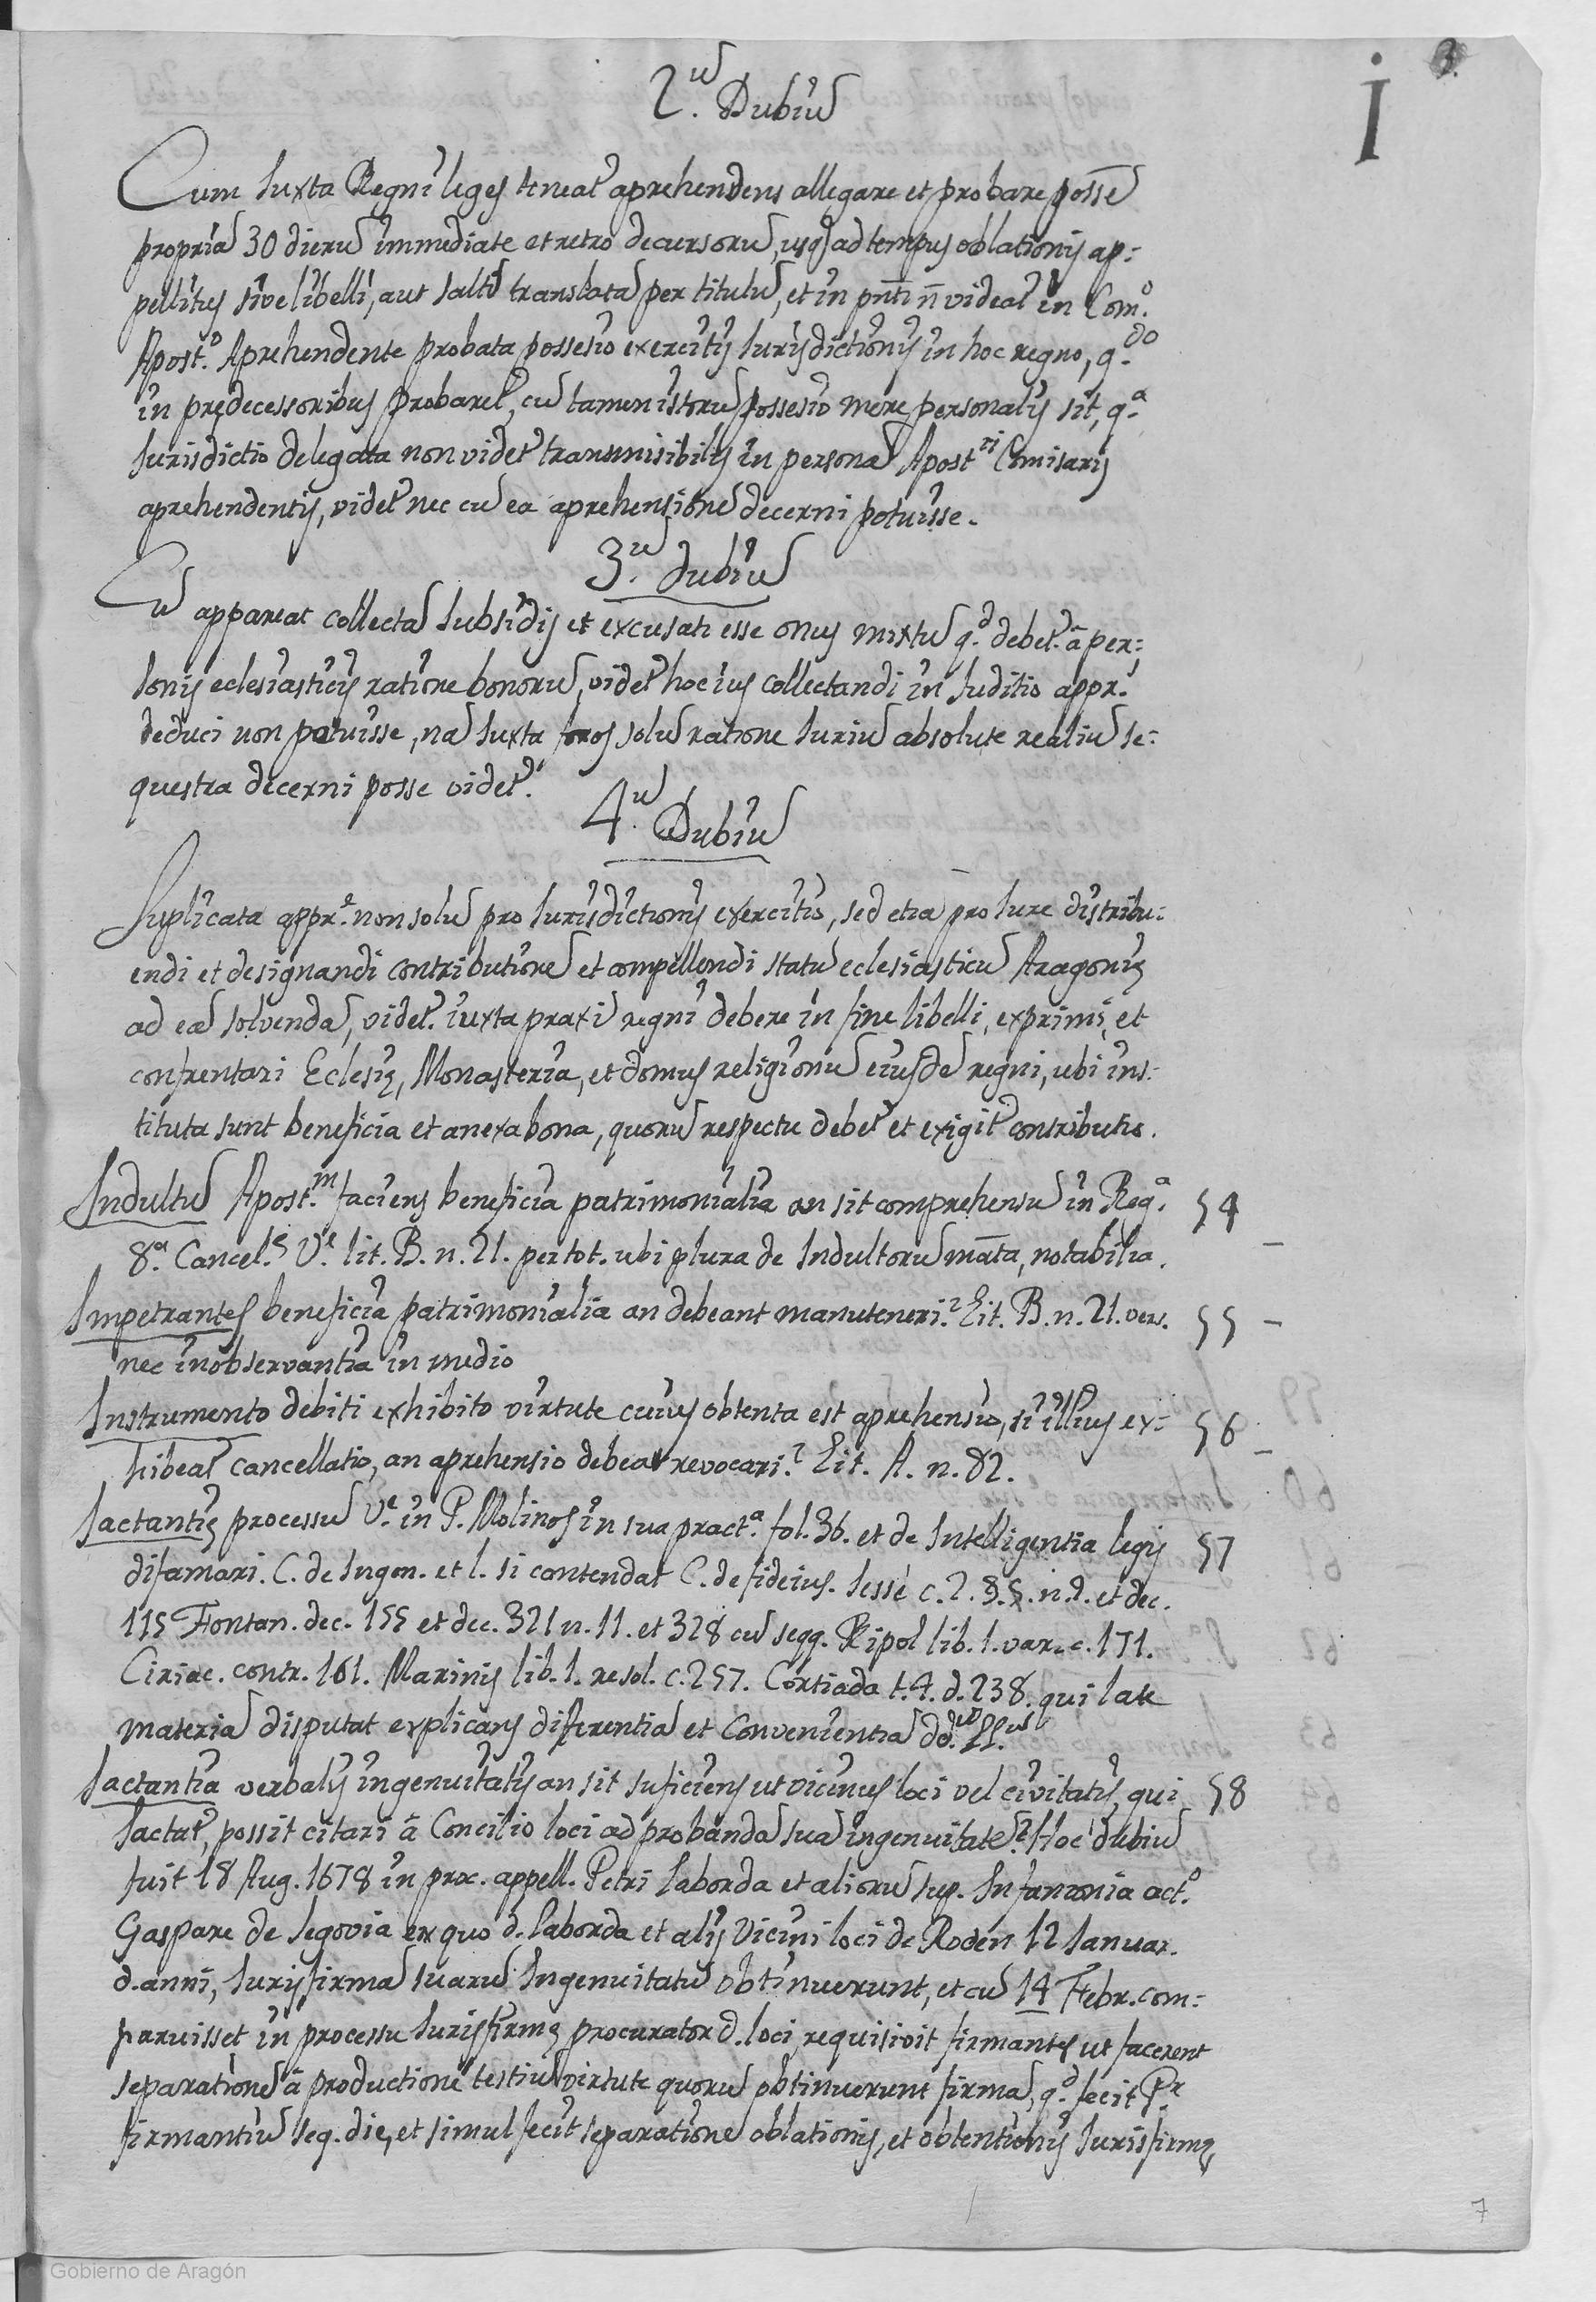 I
3.
2.ũ Dubiũ
Cum Iuxta Regni leges teneat̃ aprehendens allegare et probare possẽ
propriã 30 dierũ immediate et retro decursorũ, usq̃ ad tempus oblationis ap-
pellitus sive libelli, aut saltẽ translatã per titulũ, et in pñti ñ videat̃ in Com.º
Apost.º Aprehendente probata possesio exercitij Iurisdictionis in hoc regno, q.do
in predecessoribus probaret̃, cũ tamen istorũ possesio mere personalis sit, q.ª
Iurisdictio delegata non videt̃ transmisibilis in personã Apost.ci Comisarij
aprehendentis, videt̃ nec cũ ea aprehensionẽ decerni potuisse.
3.ũ dubiũ
Cũ appareat collectã subsidij et excusati esse onus mixtũ q.d debet̃ à per-
sonis eclesiasticis ratione bonorũ, videt̃ hoc ius collectandi in Iuditio appr.
deduci non potuisse, nã Iuxta foros solũ ratione Iuriũ absolute realiũ se-
questra decerni posse videt̃.
4.ũ Dubiũ
Suplicata appr.e non solũ pro Iurisdictionis exercitio, sed etiã pro Iure distribu-
endi et designandi contributionẽ et compellendi statũ eclesiasticũ Aragonis
ad eã solvendã, videt̃ iuxta praxĩ regni debere in fine libelli, exprimi, et
confrentari Eclesię, Monasteria, et domus religionũ eiusdẽ regni, ubi ins-
tituta sunt beneficia et anexa bona, quorũ respectu debet̃ et exigit̃ contributio.
Indultũ Apost.m faciens beneficia patrimonialia an sit comprehensũ in Reg.ª 54
8.ª Cancel.ę V.e lit. B. n. 21. per tot. ubi plura de Indultorũ mãta, notabilia.
Impetrantes beneficia patrimonialia an debeant manuteneri? Lit. B. n. 21. vers. 55
nec inobservantia in medio
Instrumento debiti exhibito virtute cuius obtenta est aprehensio, si illius ex- 56
hibeat̃ cancellatio, an aprehensio debeat revocari? Lit. A. n. 82.
Iactantię processũ V.e in P. Molinos in sua pract.ª fol. 36. et de Intelligentia legis 57
difamari. C. de Ingen. et l. si contendat C. de fideius. Sessé c. 2. § 5. n. 2. et dec.
115 Fontan. dec. 155 et dec. 321 n. 11. et 328 cũ seqq. Ripol lib. 1. var. c. 171.
Ciriac. contr. 161. Marinis lib. 1. resol. c. 257. Cortiada t. 4. d. 238. qui late
materiã disputat explicans diferentiã et Convenientiã dd. LL.
Iactantia verbalis ingenuitatis an sit suficiens ut vicinus loci vel civitatis, qui 58
Iactat̃, possit citari à Concilio loci ad probandã suã ingenuitatẽ? Hoc dubiũ
fuit 18 Aug. 1678 in proc. appell. Petri Laborda et aliorũ sup. Infanzonia act.º
Gaspare de Segovia ex quo d. Laborda et alij Vicini loci de Roden 12 Ianuar.
d. anni, Iurisfirmã suarũ Ingenuitatũ obtinuerunt, et cũ 14 Febr. com-
paruisset in processu Iurisfirmę procurator d. loci, requisivit firmantes ut facerent
separationẽ à productione testiũ virtute quorũ obtinuerunt firmã, q.d fecit Pr.
firmantiũ seq. die, et simul fecit separationẽ oblationis, et obtentionis Iurisfirmę
7
Gobierno de Aragón